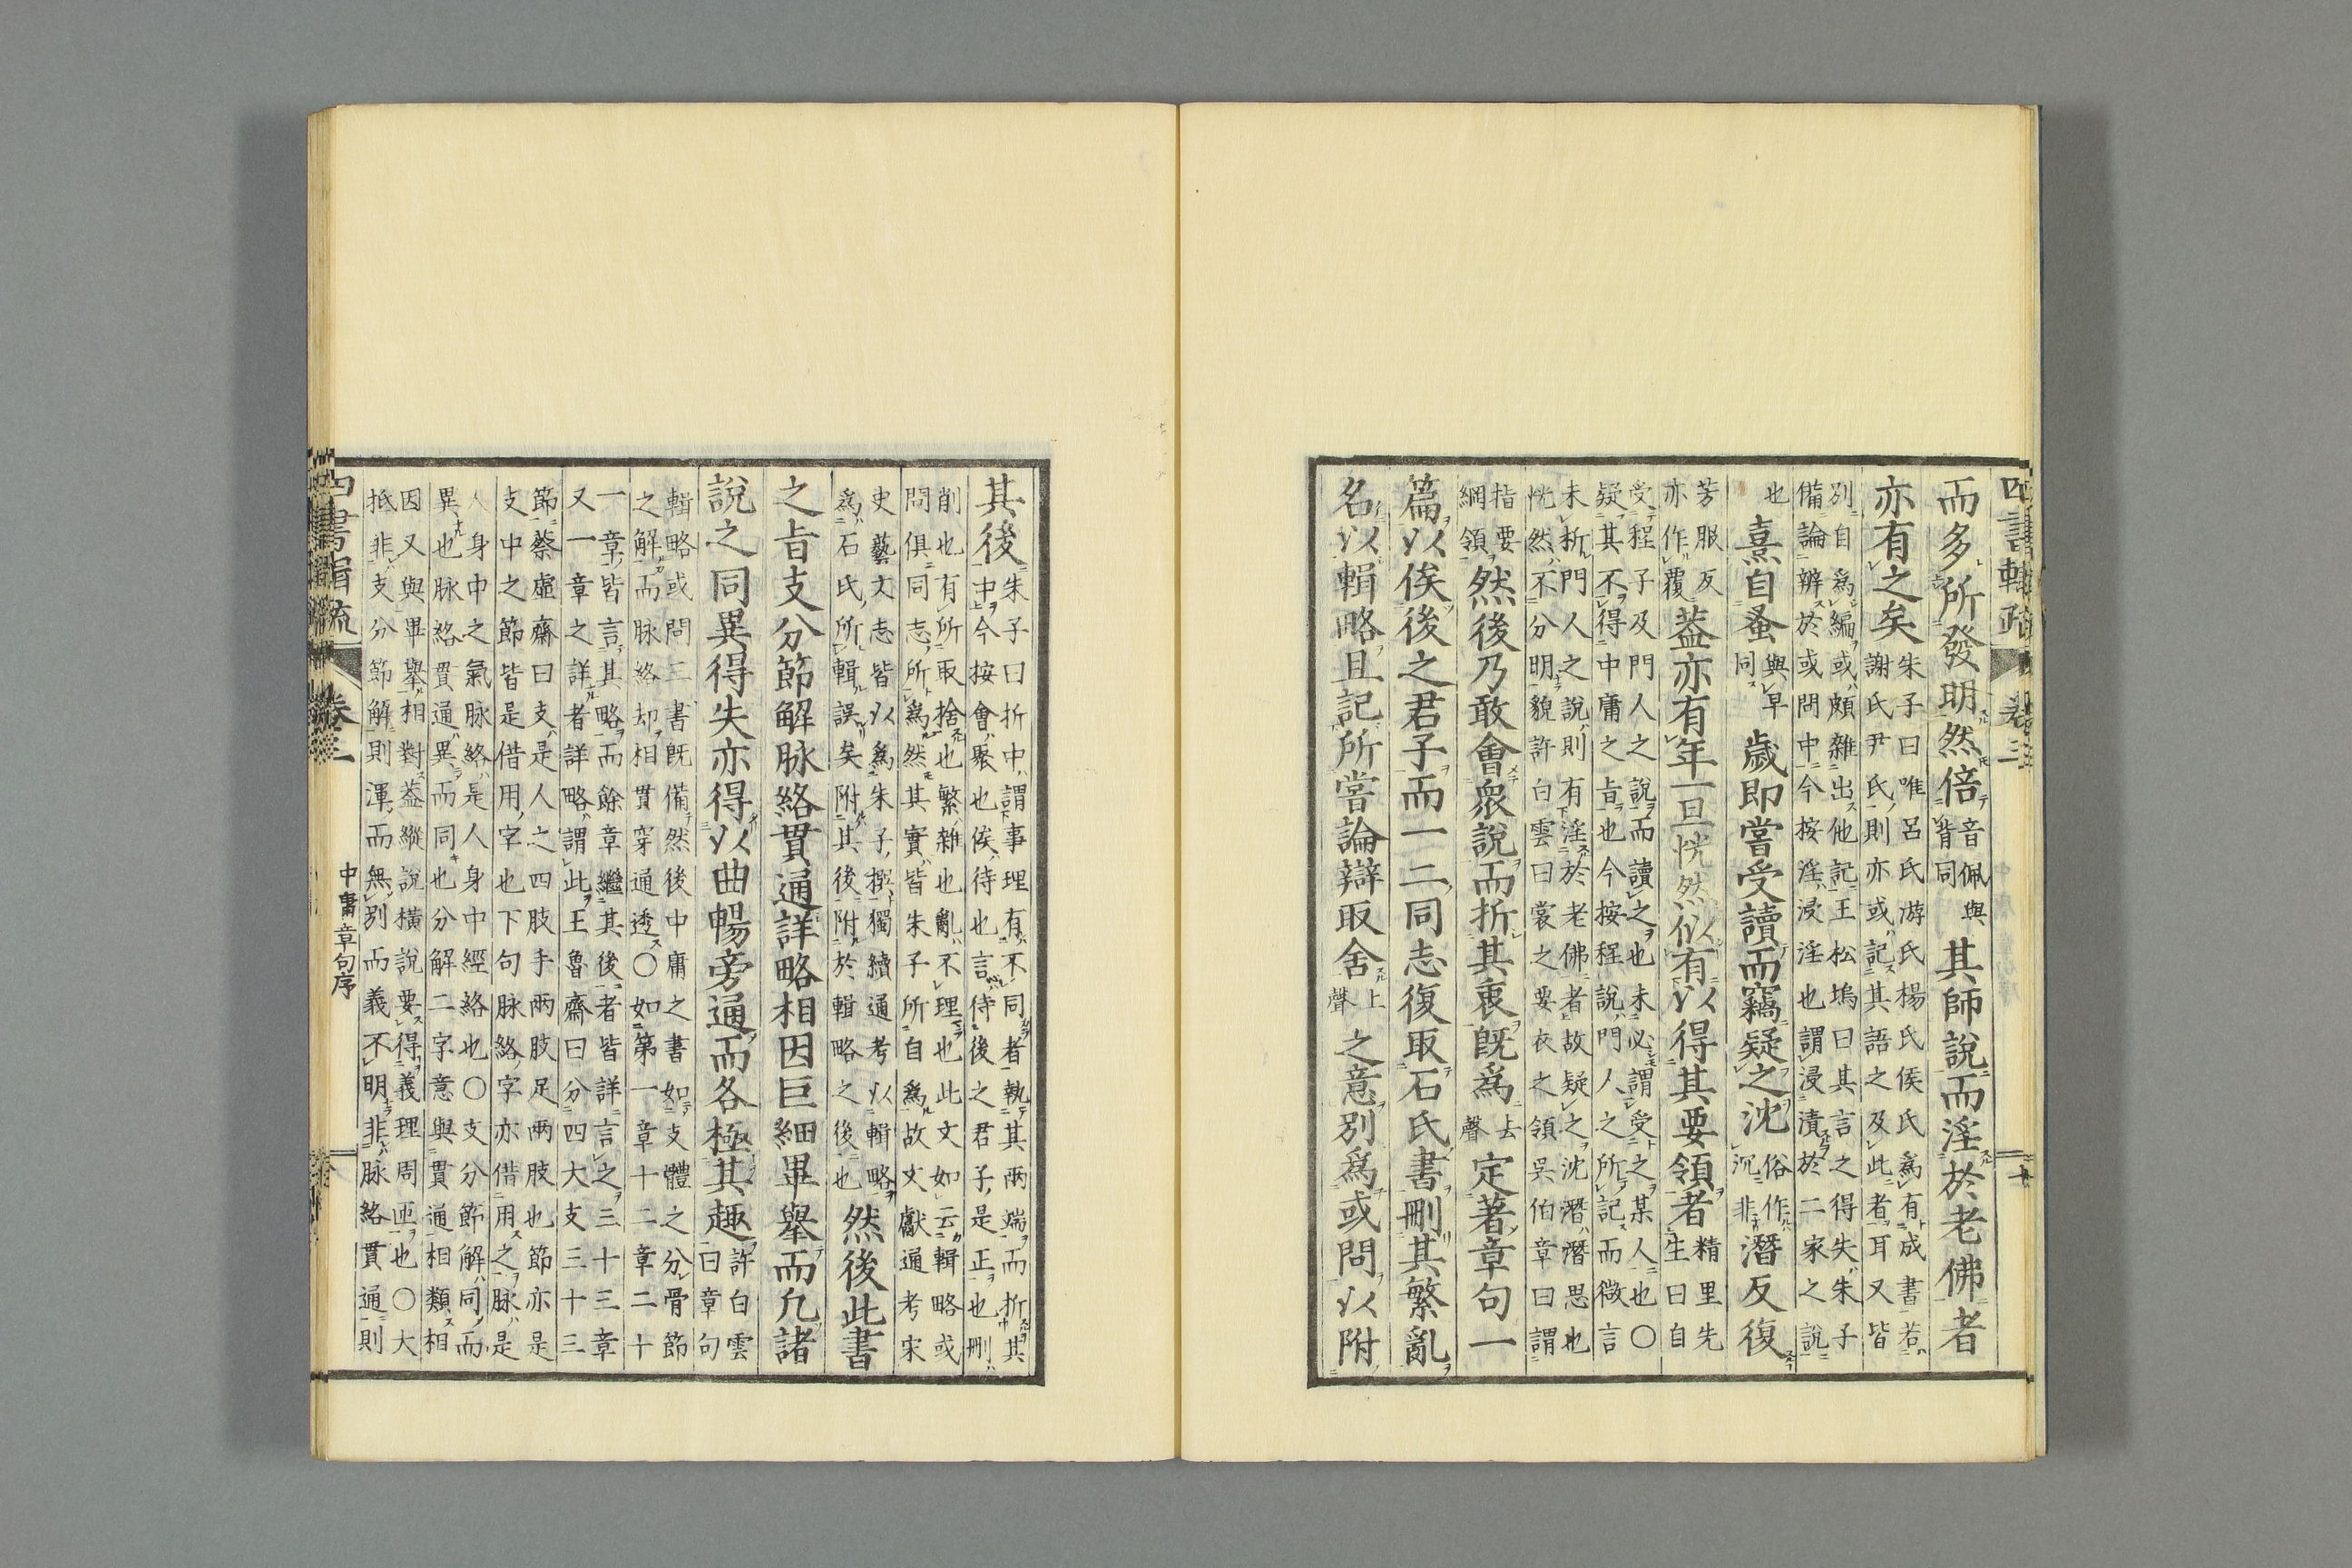 四書輯疏 卷三
而多所發明然倍音佩與背同其師說而淫於老佛者
亦有之矣朱子曰唯呂氏游氏楊氏侯氏爲有成書若
謝氏尹氏則亦或記其語之及此者耳又皆
別自爲編或頗雜出他記王松塢曰其言之得失朱子
備論辨於或問中今按淫浸淫也謂浸漬於二家之說
也熹自蚤與早同歲即嘗受讀而竊疑之沈俗作沉非潛反復
芳服反亦作覆葢亦有年一旦恍然似有以得其要領者精里先生曰自
受程子及門人之說而讀之也未必謂受之某人也〇
疑其不得中庸之旨也今按程說門人之所記而微言
未析門人之說則有淫於老佛者故疑之沈潛潛思也
恍然不分明貌許白雲曰裳之要衣之領吳伯章曰謂
指要綱領然後乃敢會衆說而折其衷既爲去聲定著章句一
篇以俟後之君子而一二同志復取石氏書刪其繁亂
名以輯略且記所嘗論辯取舍上聲之意別爲或問以附
其後朱子曰折中謂事理有不同者執其兩端而折其
中今按會聚也俟待也言待後之君子是正也刪
削也有所取捨也繁雜也亂不理也此文如云輯略或
問俱同志所爲然其實皆朱子所自爲故文獻通考宋
史藝文志皆以爲朱子撰獨續通考以輯略
爲石氏所輯誤矣附其後附於輯略之後也然後此書
之旨支分節解脉絡貫通詳略相因巨細畢舉而凡諸
說之同異得失亦得以曲暢旁通而各極其趣許白雲曰章句
輯略或問三書既備然後中庸之書如支體之分骨節
之解而脉絡却相貫穿通透〇如第一章十二章二十
一章皆言其略而餘章繼其後者皆詳言之三十三章
又一章之詳者詳略謂此王魯齋曰分四大支三十三
節蔡虛齋曰支是人之四肢手兩肢足兩肢也節亦是
支中之節皆是借用字也下句脉絡字亦借用之脉是
人身中之氣脉絡是人身中經絡也〇支分節解同而
異也脉絡貫通異而同也分解二字意與貫通相類相
因又與畢舉相對葢縱說橫說要得義理周匝也〇大
抵非支分節解則渾而無別而義不明非脉絡貫通則
四書輯疏 卷三 中庸章句序